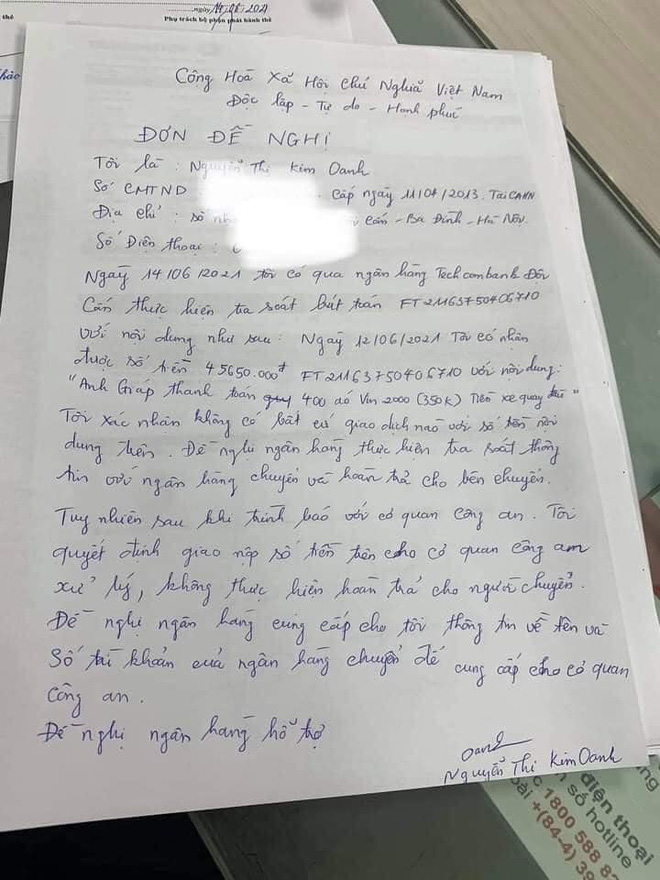 ngày 14, 06, 2021
thẻ
Phụ trách bộ phận phát hành thẻ
Cộng Hoà Xã Hội Chủ Nghĩa Việt Nam
Độc lập - Tự do - Hạnh phúc
ĐƠN ĐỀ NGHỊ
Tôi là : Nguyễn Thị Kim Oanh
Số CMTND cấp ngày 11/04/2013. Tại CAHN
Địa chỉ : số nh Cấn - Ba Đình - Hà Nội.
Số Điện thoại :
Ngày 14/06/2021 tôi có qua ngân hàng Techcombank Đội
Cấn thực hiện tra soát bút toán FT21163750406710
với nội dung như sau: Ngày 12/06/2021 Tôi có nhận
được số tiền 45650.000đ FT21163750406710 với nội dung:
"Anh Giáp thanh toán 400 áo Vin 2000 (350k) Tiền xe quay đầu"
Tôi xác nhận không có bất cứ giao dịch nào với số tiền nội
dung trên. Đề nghị ngân hàng thực hiện tra soát thông
tin với ngân hàng chuyển và hoàn trả cho bên chuyển.
Tuy nhiên sau khi trình báo với cơ quan công an. Tôi
quyết định giao nộp số tiền trên cho cơ quan công an
xử lý, không thực hiện hoàn trả cho người chuyển.
Đề nghị ngân hàng cung cấp cho tôi thông tin về tên và
Số tài khoản của ngân hàng chuyển để cung cấp cho cơ quan
công an.
Đề nghị ngân hàng hỗ trợ
Oanh
Nguyễn Thị Kim Oanh
điện thoại
số hotline
1800 588 82
+(84-4) 39